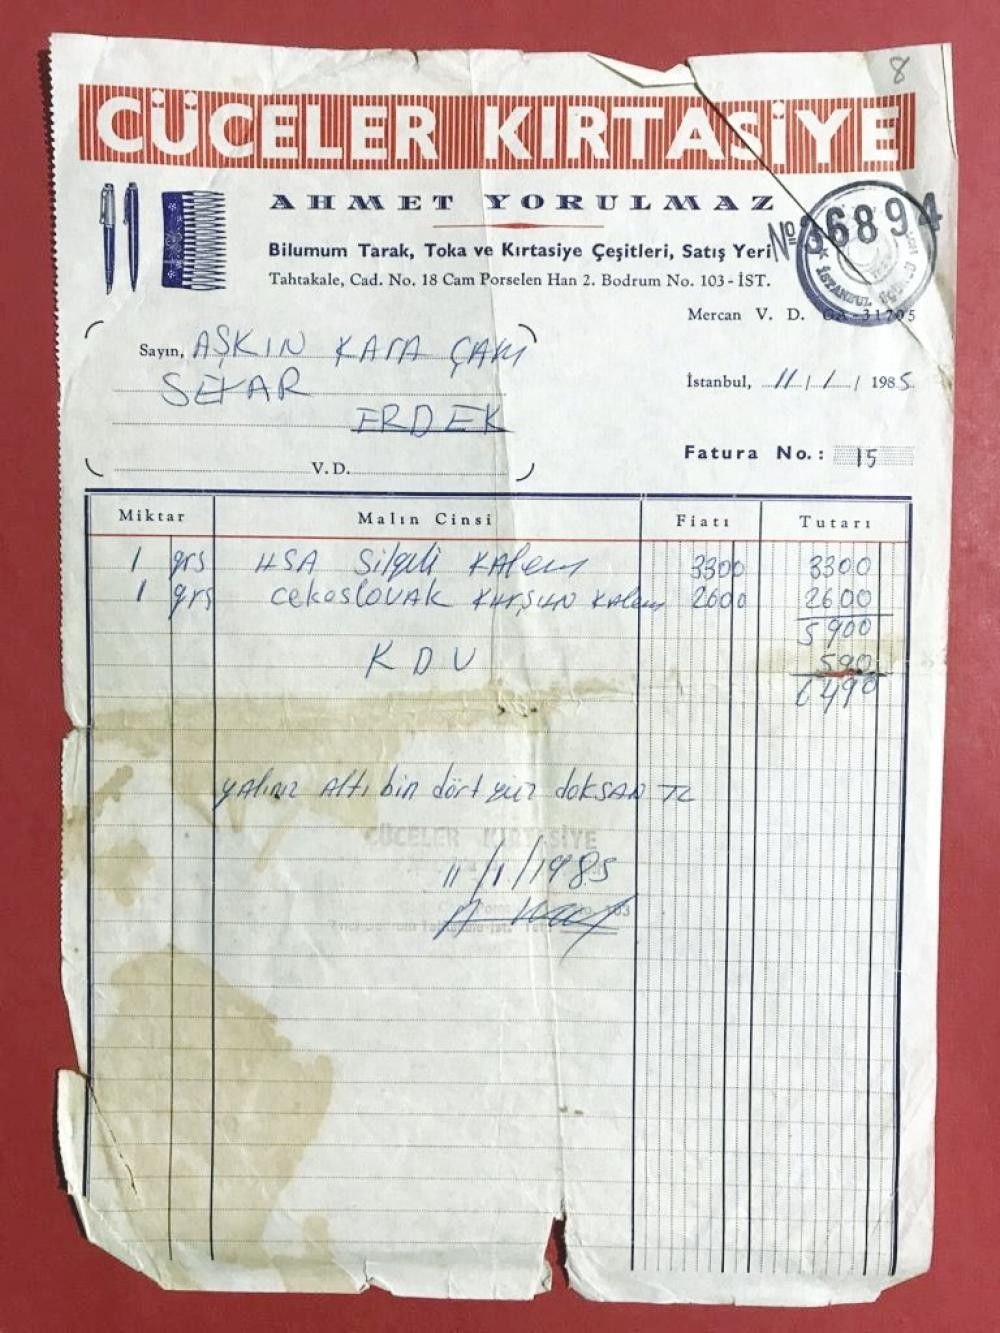 8
CÜCELER KIRTASİYE
AHMET YORULMAZ
Bilumum Tarak, Toka ve Kırtasiye Çeşitleri, Satış Yeri
Tahtakale, Cad. No. 18 Cam Porselen Han 2. Bodrum No. 103 - İST.
No 36894
İSTANBUL
Mercan V. D. 31705
Sayın, AŞKIN KARA ÇAM
ERDEK
V.D.
İstanbul, 11 / 1 / 1985
Fatura No.: 15
Miktar Malın Cinsi Fiatı Tutarı
1 grs Silgili KAlem 3300 3300
1 grs cekoslovak KURŞUN KAlem 2600 2600
5900
KDV 590
6490
yalınız Altı bin dört yüz dokSAN TL
CÜCELER KIRTASİYE
11/1/1985